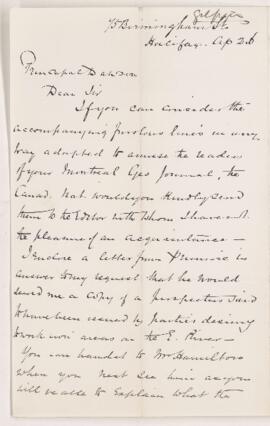 Gilpin
75 Birmingham St.
Halifax. Ap 26
Principal Dawson
Dear Sir
If you can consider the
accompanying frivolous lines in any
way adapted to amuse the readers
of your Montreal Geo Journal, the
Canad. Nat. would you kindly send
them to the Editor with whom I have not
the pleasure of an acquaintance —
I enclose a letter from in
answer to my request that he would
send me a copy of a Prospectus said
to have been issued by parties desiring
to work iron areas on the E. River —
You can hand it to Mr Hamilton
when you next see him as you
will be able to explain what the